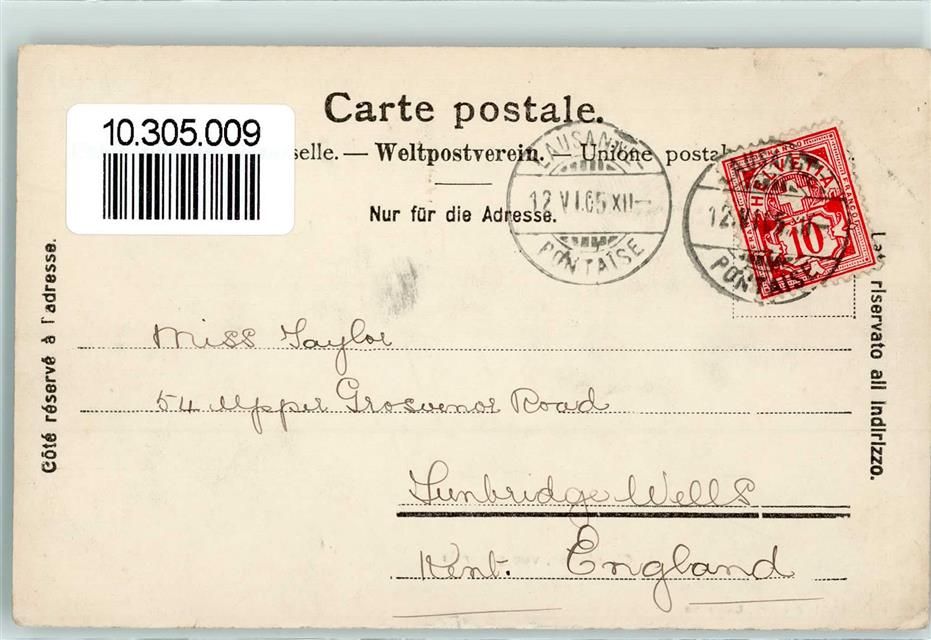 Carte postale.
10.305.009
selle. — Weltpostverein. — Unione postal
Nur für die Adresse.
LAUSANNE
12.VI.05.XII
PONTAISE
HELVETIA
FRANCO
10
12.VI.
PONTAISE
Côté réservé à l'adresse.
riservato all indirizzo.
Miss Taylor
54 Upper Grosvenor Road
Tunbridge Wells
Kent. England